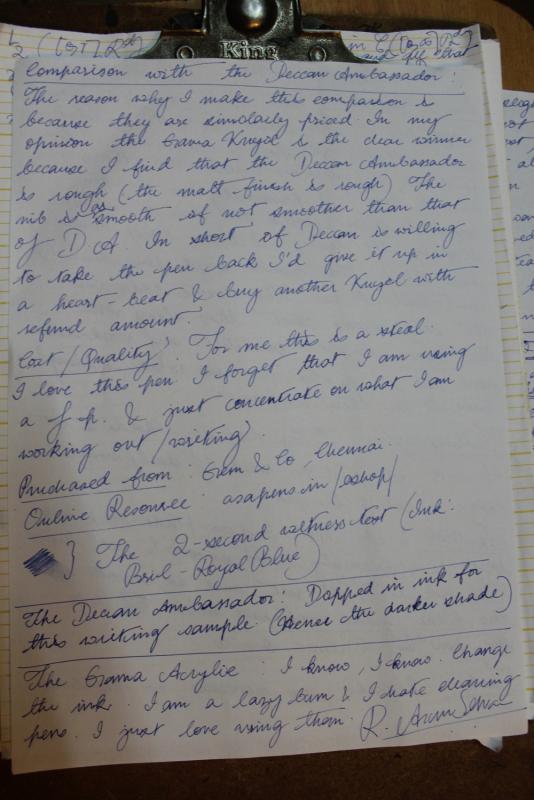 King
Comparison with the Deccan Ambassador:
The reason why I make this comparison is
because they are similarly priced. In my
opinion the Gama Krugel is the clear winner
because I find that the Deccan Ambassador
is rough (the matt finish is rough) The
nib is as smooth if not smoother than that
of D A. In short if Deccan is willing
to take the pen back I'd give it up in
a heart-beat & buy another Krugel with
refund amount.
Cost/Quality: For me this is a steal.
I love this pen. I forget that I am using
a f.p. & just concentrate on what I am
working out/writing.
Purchased from: Gem & Co, Chennai.
Online Resource: asapens.in/eshop/
} The 2-second wetness test (Ink:
Bril-Royal Blue)
The Deccan Ambassador: Dipped in ink for
this writing sample. (Hence the darker shade)
The Gama Acrylic: I know, I know. Change
the ink. I am a lazy bum & I hate cleaning
pens. I just love using them.